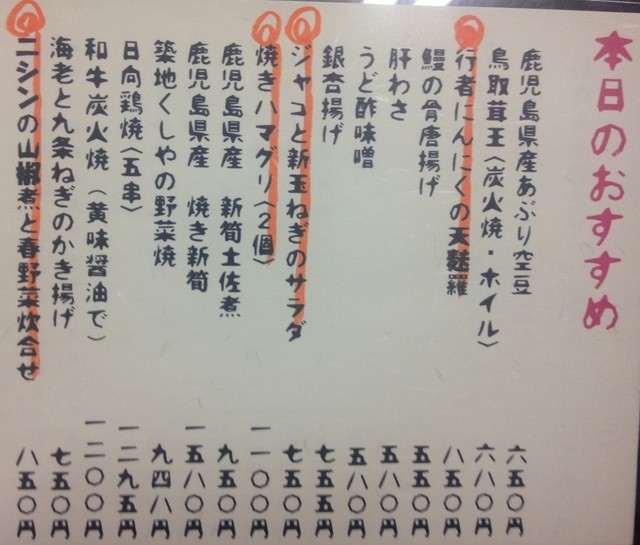 本日のおすすめ
鹿児島県産あぶり空豆 六五〇円
鳥取茸王(炭火焼・ホイル) 六八〇円
行者にんにくの天麩羅 八五〇円
鰻の骨唐揚げ 五五〇円
肝わさ 五八〇円
うど酢味噌 五八〇円
銀杏揚げ 七五五円
ジャコと新玉ねぎのサラダ 七五〇円
焼きハマグリ(2個) 一一〇〇円
鹿児島県産 新筍土佐煮 九五〇円
鹿児島県産 焼き新筍 一五八〇円
築地くしやの野菜焼 九四八円
日向鶏焼(五串) 一二九五円
和牛炭火焼(黄味醤油で) 一二〇〇円
海老と九条ねぎのかき揚げ 七五〇円
ニシンの山椒煮と春野菜炊合せ 八五〇円